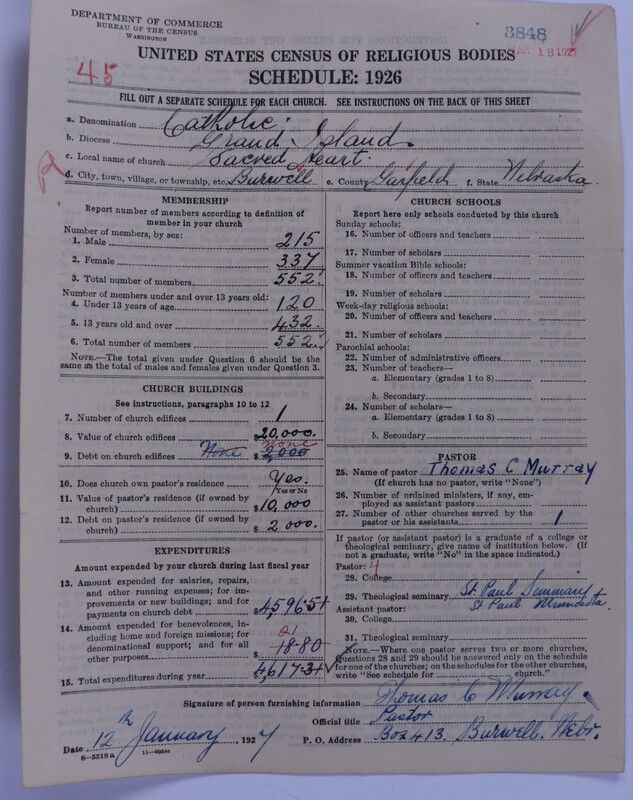 DEPARTMENT OF COMMERCE
BUREAU OF THE CENSUS
WASHINGTON
3848
MAR 18 1927
45
UNITED STATES CENSUS OF RELIGIOUS BODIES
SCHEDULE: 1926
FILL OUT A SEPARATE SCHEDULE FOR EACH CHURCH. SEE INSTRUCTIONS ON THE BACK OF THIS SHEET
a. Denomination Catholic.
b. Diocese Grand Island.
c. Local name of church Sacred Heart.
d. City, town, village, or township, etc. Burwell e. County Garfield f. State Nebraska.
MEMBERSHIP
Report number of members according to definition of member in your church
Number of members, by sex:
1. Male 215
2. Female 337
3. Total number of members 552.
Number of members under and over 13 years old:
4. Under 13 years of age 120
5. 13 years old and over 432.
6. Total number of members 552
NOTE.—The total given under Question 6 should be the same as the total of males and females given under Question 3.
CHURCH BUILDINGS
See instructions, paragraphs 10 to 12
7. Number of church edifices 1
8. Value of church edifices $20,000.
9. Debt on church edifices None $2,000 none
10. Does church own pastor's residence Yes.
Yes or No
11. Value of pastor's residence (if owned by church) $10,000
12. Debt on pastor's residence (if owned by church) $2,000.
EXPENDITURES
Amount expended by your church during last fiscal year
13. Amount expended for salaries, repairs, and other running expenses; for improvements or new buildings; and for payments on church debt $4596.51
14. Amount expended for benevolences, including home and foreign missions; for denominational support; and for all other purposes 21 18.80
15. Total expenditures during year $4617.31
CHURCH SCHOOLS
Report here only schools conducted by this church
Sunday schools:
16. Number of officers and teachers
17. Number of scholars
Summer vacation Bible schools:
18. Number of officers and teachers
19. Number of scholars
Week-day religious schools:
20. Number of officers and teachers
21. Number of scholars
Parochial schools:
22. Number of administrative officers
23. Number of teachers—
a. Elementary (grades 1 to 8)
b. Secondary
24. Number of scholars—
a. Elementary (grades 1 to 8)
b. Secondary
PASTOR
25. Name of pastor Thomas C Murray
(If church has no pastor, write "None")
26. Number of ordained ministers, if any, employed as assistant pastors
27. Number of other churches served by the pastor or his assistants 1
If pastor (or assistant pastor) is a graduate of a college or theological seminary, give name of institution below. (If not a graduate, write "No" in the space indicated.)
Pastor: 4
28. College
29. Theological seminary St. Paul Seminary
St Paul Minnesota.
Assistant pastor:
30. College
31. Theological seminary
NOTE.—Where one pastor serves two or more churches, questions 28 and 29 should be answered only on the schedule for one of the churches; on the schedules for the other churches, write "See schedule for church."
Signature of person furnishing information Thomas C Murray
Official title Pastor
Date 12th January, 1927 P. O. Address Box 413. Burwell. Nebr.
8-5518a